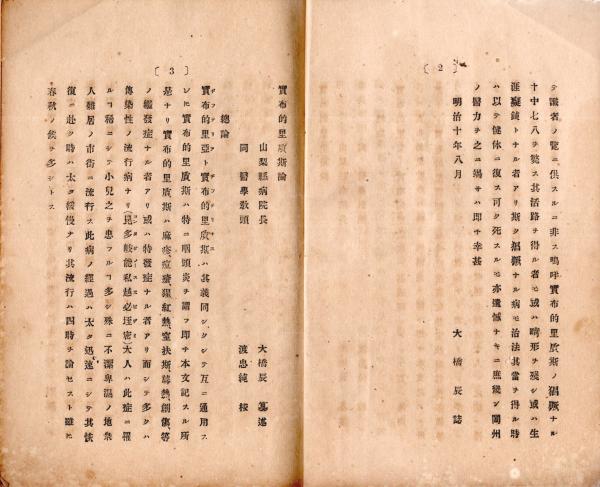 〔2〕
テ識者ノ覽ニ供スルニ非ス嗚呼實布的里質斯ノ猖厥ナル
十中七八ヲ斃ス其活路ヲ得ル者モ或ハ畸形ヲ殘シ或ハ生
涯癈錮トナル者アリ斯ク猖厥ナル病モ治法其當ヲ得ル時
ハ以テ健休ニ復ス可ク死スルモ亦遺憾ナキニ庶幾シ闔州
ノ醫力ヲ之ニ竭サハ即チ幸甚
明治十年八月
大橋辰誌
〔3〕
實布的里質斯論
山梨縣病院長 大橋辰 纂述
同 醫學敎頭 波忠純 校
總論
實布的里亞ト實布的里質斯ハ其義同シクシテ互ニ通用ス
ジヒニ實布的里質斯ハ特ニ咽頭炎ヲ謂フ即チ本文記スル所
是ナリ實布的里質斯ハ麻疹、痘瘡、猩紅熱、窒扶斯、膿熱、創傷、等
ノ繼發症ナル者アリ或ハ特發症ナル者アリ而シテ多クハ
傳染性ノ流行病ナリ(昆多幾能私越必埀密)大人ハ此症ニ罹
ルコ稀ニシテ小兒之ヲ患フルコ多シ殊ニ不潔卑濕ノ地衆
人雜居ノ市街ニ流行ス此病ノ經過ハ太タ迅速ニシテ其恢
復ニ赴ク時ハ太タ緩慢ナリ其流行ハ四時ヲ論セスト雖ヒ
春秋ノ候ヲ多シトス